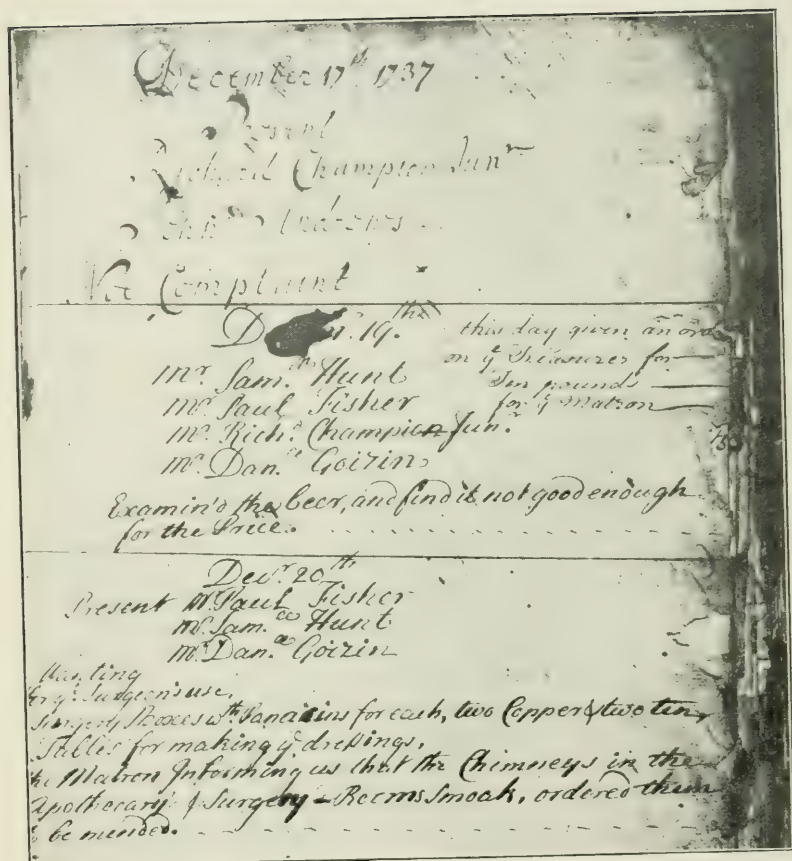 December 17th 1737
Present
Richard Champion Junr
Andrews
No Complaint
19th this day given an
on ye Treasurer for
Ten pounds
for ye Matron
Mr. Samll Hunt
Mr. Paul Fisher
Mr. Richd. Champion Junr.
Mr. Danll Goizin
Examin'd the beer, and find it not good enough
for the Price.
Decr. 20th
Present Mr. Paul Fisher
Mr. Samll Hunt
Mr. Danll Goizin
Wanting
For ye Surgeons use,
Surgery Boxes wth for each, two Copper & two tin
Tables for making ye dressings.
The Matron Informing us that the Chimneys in the
Apothecary & Surgery - Rooms Smoak, ordered them
be mended.